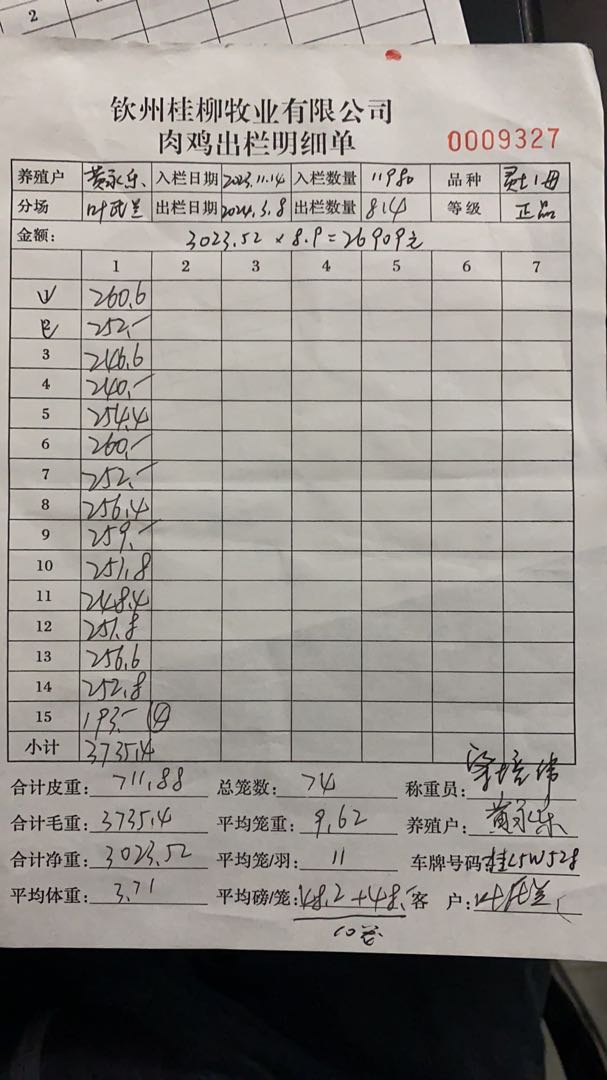 2
钦州桂柳牧业有限公司
肉鸡出栏明细单
0009327
养殖户 黄永乐 入栏日期 2023.11.14 入栏数量 11980 品种
分场 叶武兰 出栏日期 2024.3.8 出栏数量 814 等级 正品
金额: 3023.52 × 8.9 = 26909元
1 2 3 4 5 6 7
260.6
252.-
3 246.6
4 240.-
5 254.4
6 260.-
7 252.-
8 256.4
9 259.-
10 251.8
11 248.4
12 251.8
13 256.6
14 252.8
15 193.- ④
小计 3735.4
合计皮重: 711.88 总笼数: 74 称重员:
合计毛重: 3735.4 平均笼重: 9.62 养殖户: 黄永乐
合计净重: 3023.52 平均笼/羽: 11 车牌号码: 桂L5W528
平均体重: 3.71 平均磅/笼: 48.2+48.- 客 户:
10卷